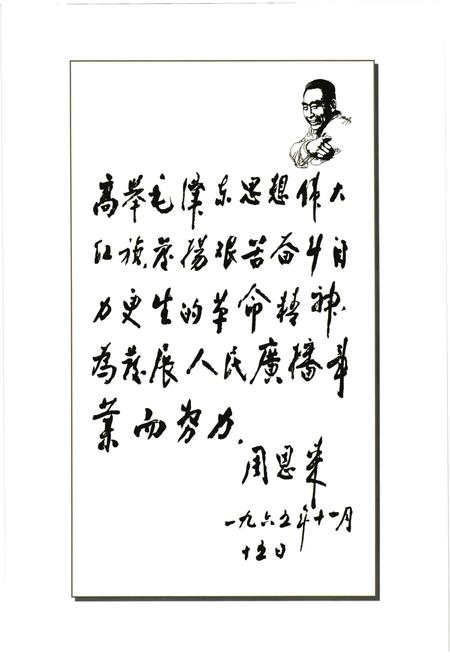 高舉毛澤东思想伟大
红旗,发揚艰苦奋斗自
力更生的革命精神,
為发展人民廣播事
業而努力。
周恩来
一九六五年十一月
十五日